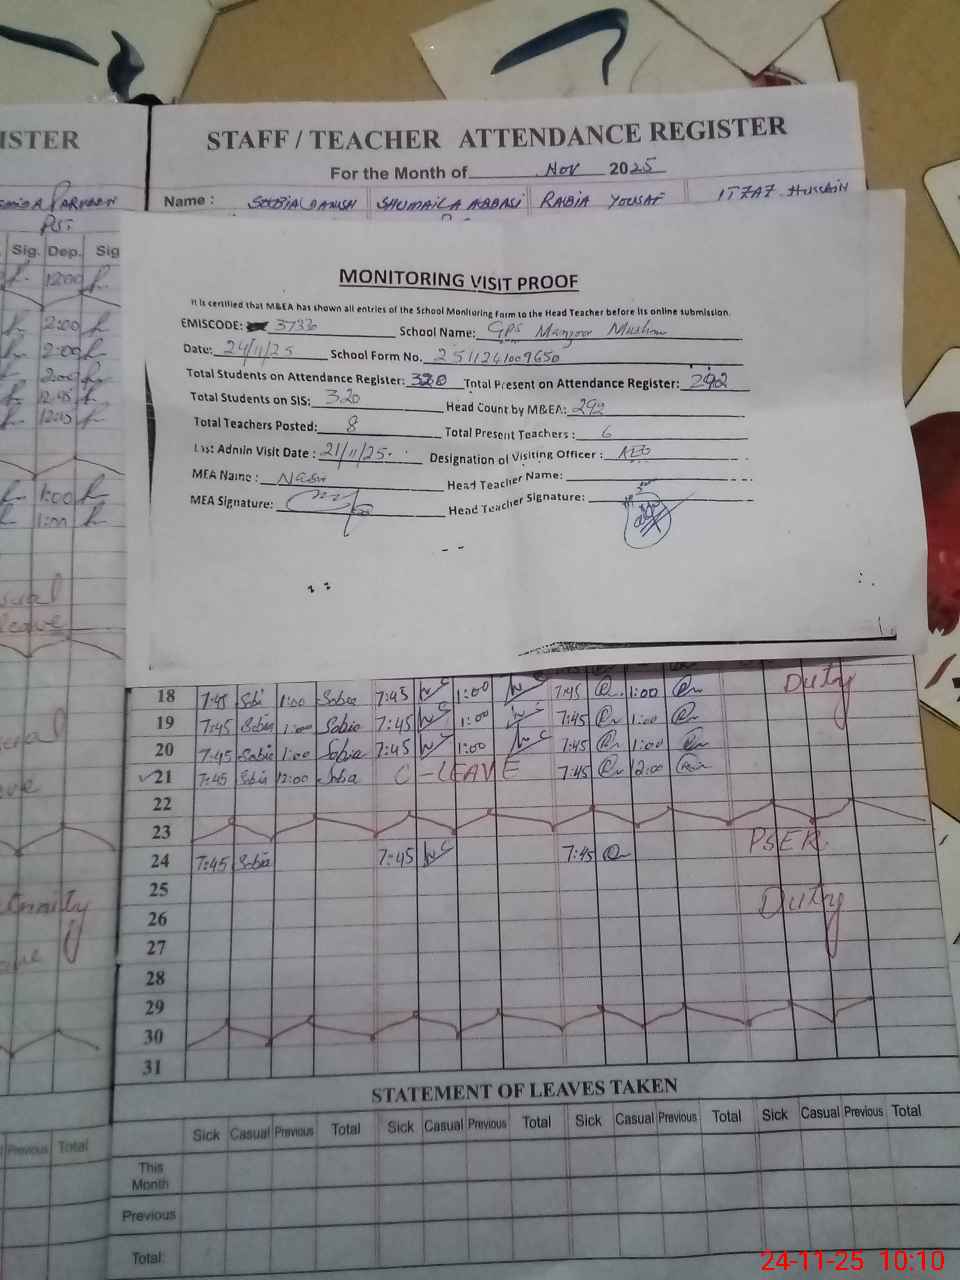 ISTER
STAFF / TEACHER ATTENDANCE REGISTER
For the Month of Nov 2025
Name : SOBIA DANISH SHUMAILA ABBASI RABIA YOUSAF ITZAZ HUSSAIN
Sig. Dep. Sig
12:00
2:00
2:00
2:00
12:45
12:45
1:00
1:00
MONITORING VISIT PROOF
It is certified that M&EA has shown all entries of the School Monitoring Form to the Head Teacher before its online submission.
EMISCODE: 37330 School Name: GPS Manzoor Muslim
Date: 24/11/25 School Form No. 2511241009650
Total Students on Attendance Register: 320 Total Present on Attendance Register: 292
Total Students on SIS: 320 Head Count by M&EA: 292
Total Teachers Posted: 8 Total Present Teachers : 6
Last Admin Visit Date : 21/11/25. Designation of Visiting Officer : AEO
MEA Name : Head Teacher Name:
MEA Signature: Head Teacher Signature:
leave
18 7:45 Sobia 1:00 Sobia 7:45 1:00 7:45 1:00 Duty
19 7:45 Sobia 1:00 Sobia 7:45 1:00 7:45 1:00
20 7:45 Sobia 1:00 Sobia 7:45 1:00 7:45 1:00
21 7:45 Sobia 12:00 Sobia C-LEAVE 7:45 12:00
22
23
24 7:45 Sobia 7:45 7:45 PSER
25
26 Duty
27
28
29
30
31
STATEMENT OF LEAVES TAKEN
Previous Total Sick Casual Previous Total Sick Casual Previous Total Sick Casual Previous Total Sick Casual Previous Total
This Month
Previous
Total:
24-11-25 10:10